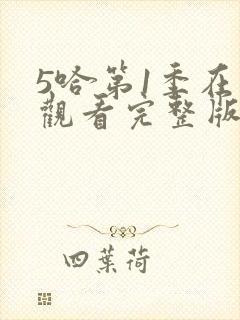 5哈第1季在
觀看完整版
四葉荷